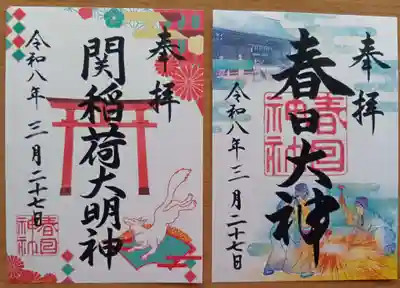 奉拝
関稲荷大明神
令和八年 三月二十七日
春日神社
奉拝
春日大神
令和八年 三月二十七日
春日神社